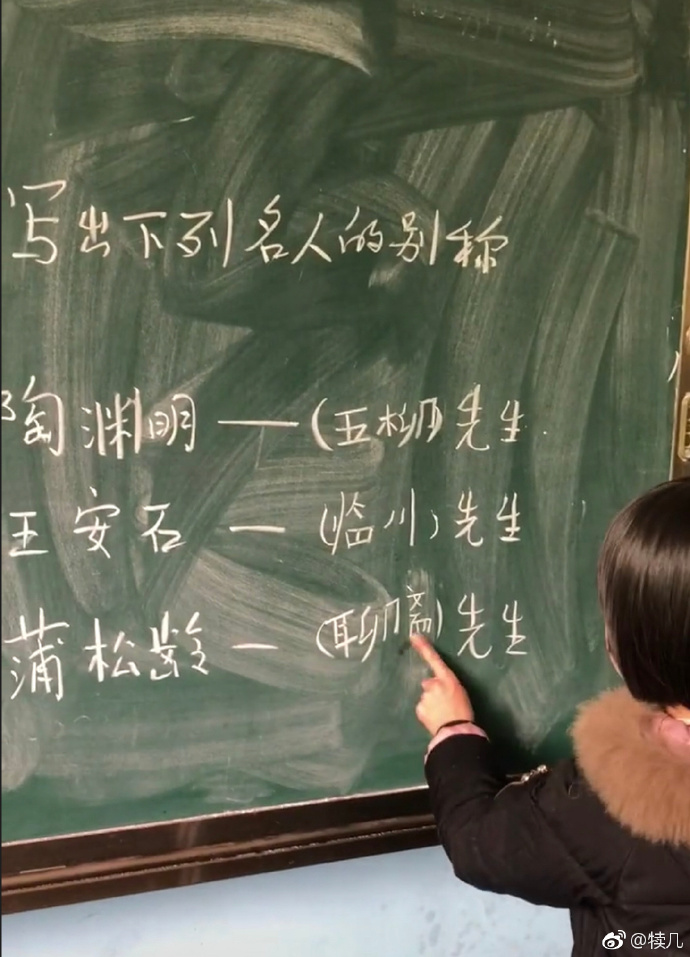 写出下列名人的别称
陶渊明—(五柳)先生
王安石—(临川)先生
蒲松龄—(聊斋)先生
@犊几